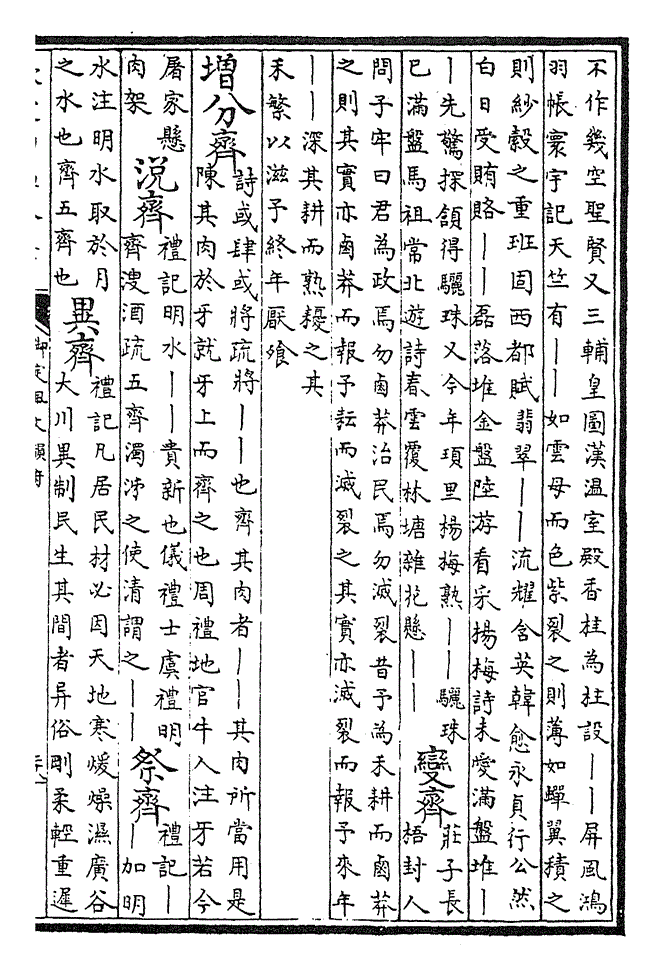 不作幾空聖賢又三輔皇圖漢温室殿香桂為柱設——屏風鴻
羽帳寰宇記天竺有——如雲母而色紫裂之則薄如蟬翼積之
則紗縠之重班固西都賦翡翠——流耀含英韓愈永貞行公然
白日受賄賂——磊落堆金盤陸游看采楊梅詩未愛滿盤堆—
—先驚探頷得驪珠又今年項里楊梅熟——驪珠
已滿盤馬祖常北遊詩春雲覆林塘雜花懸——
變齊
莊子長
梧封人
問子牢曰君為政焉勿鹵莽治民焉勿滅裂昔予為禾耕而鹵莽
之則其實亦鹵莽而報予耘而滅裂之其實亦滅裂而報予來年
——深其耕而熟耰之其
禾繁以滋予終年厭飱
增分齊
詩或肆或將疏將——也齊其肉者——其肉所當用是
陳其肉於牙就牙上而齊之也周禮地官牛人注牙若今
屠家懸
肉架
説齊
禮記明水——貴新也儀禮士虞禮明
齊溲酒疏五齊濁泲之使清謂之——
祭齊
禮記—
—加明
水注明水取於月
之水也齊五齊也
異齊
禮記凡居民材必因天地寒煖燥濕廣谷
大川異制民生其間者异俗剛柔輕重遲
御定佩文韻府